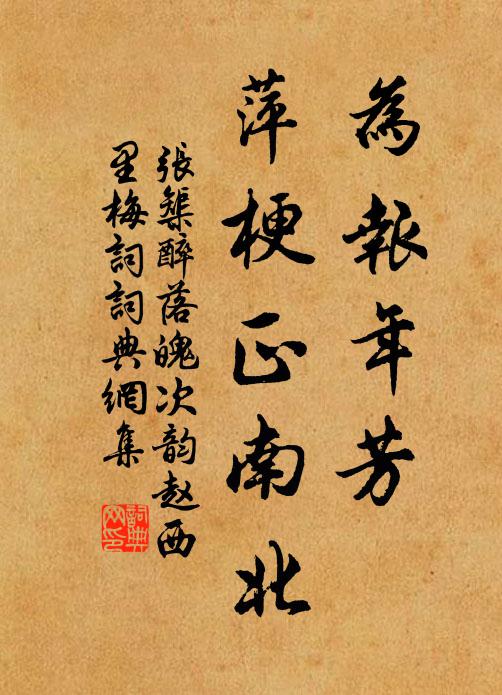 為報年芳
萍梗正南北
張榘醉落魄次韵赵西
里梅詞詞典網集
詞典网印